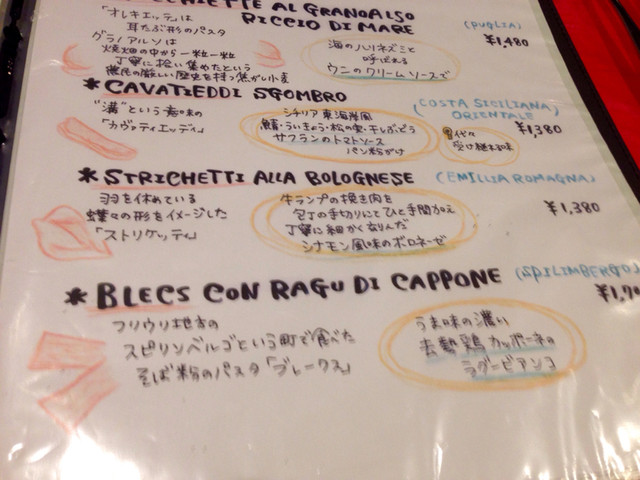 ECCHIETTE AL GRANOALSO
RICCIO DI MARE
(PUGLIA)
¥1,480
「オレキエッテ」は
耳たぶ形のパスタ
グラノアルソは
焼畑の中から一粒一粒
丁寧に拾い集めたという
農民の厳しい歴史を持つ焦がし小麦
海のハリネズミと
呼ばれる
ウニのクリームソースで
*CAVATIEDDI SGOMBRO
(COSTA SICILIANA
ORIENTALE)
¥1,380
"溝"という意味の
「カヴァティエッディ」
シチリア東海岸風
鯖・ういきょう・松の実・干しぶどう
サフランのトマトソース
パン粉がけ
代々
受け継れる味
*STRICHETTI ALLA BOLOGNESE
(EMILLIA ROMAGNA)
¥1,380
羽を休めている
蝶々の形をイメージした
「ストリケッティ」
牛ランプの挽き肉を
包丁の手切りにてひと手間加え
丁寧に細かくきざんだ
シナモン風味のボロネーゼ
*BLECS CON RAGU DI CAPPONE
(SPILIMBERGO)
¥1,70
フリウリ地方の
スピリンベルゴという町で食べた
そば粉のパスタ「ブレークス」
うま味の濃い
去勢鶏カッポーネの
ラグービアンコ